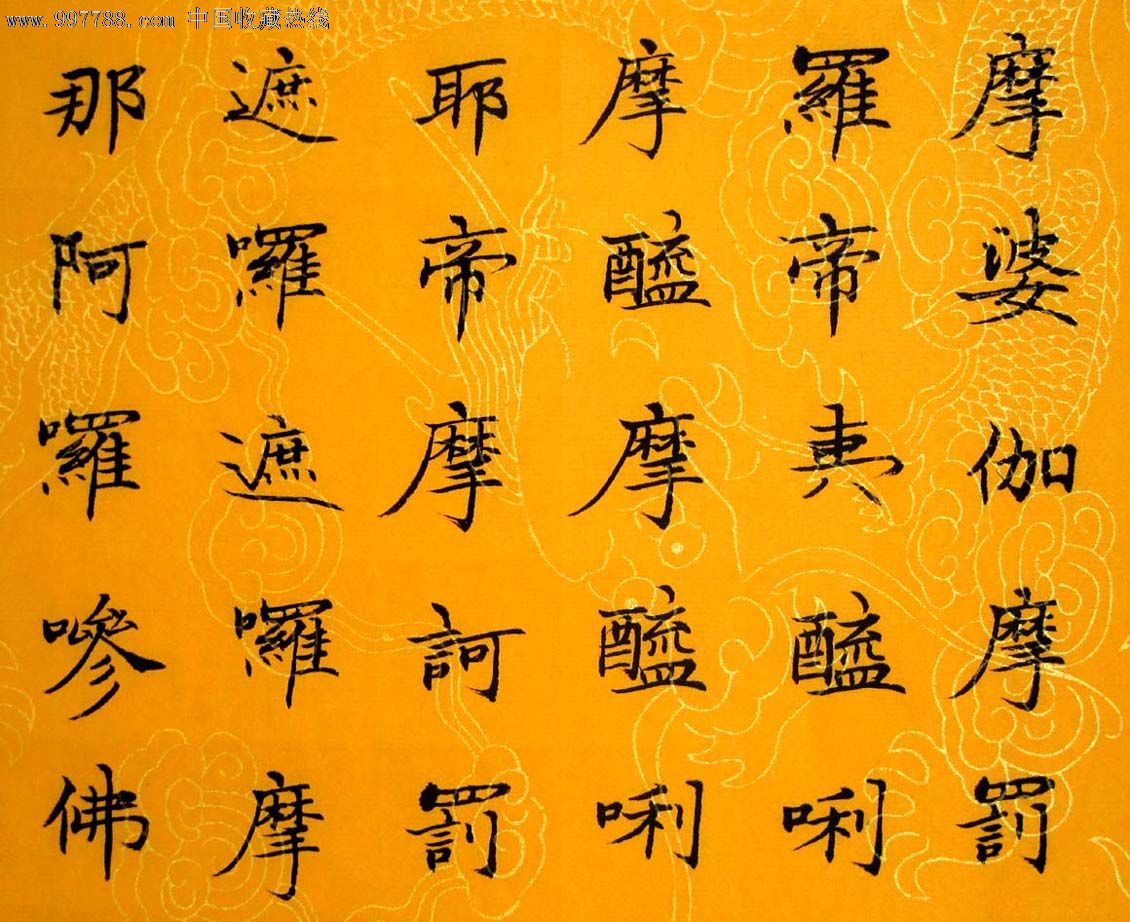 www.997788.com 中国收藏热线
摩婆伽摩罰
羅帝夷醯唎
摩醯摩醯唎
耶帝摩訶罰
遮囉遮囉摩
那阿囉嘇佛